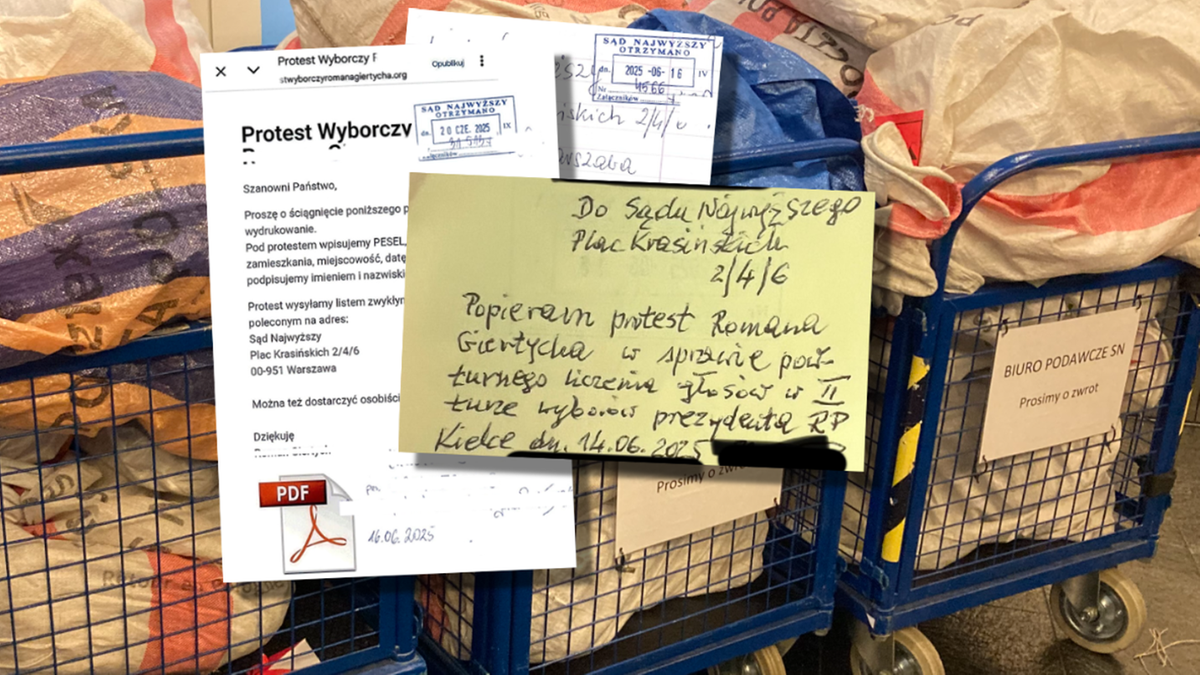 Protest Wyborczy
stwyborczyromanagiertycha.org
Opublikuj
Protest Wyborczy
SĄD NAJWYŻSZY
OTRZYMANO
dn. 20 CZE. 2025 IX
Szanowni Państwo,
Proszę o ściągnięcie poniższego
wydrukowanie.
Pod protestem wpisujemy PESEL,
zamieszkania, miejscowość, datę
podpisujemy imieniem i nazwiski
Protest wysyłamy listem zwykłym
poleconym na adres:
Sąd Najwyższy
Plac Krasińskich 2/4/6
00-951 Warszawa
Można też dostarczyć osobiści
Dziękuję
PDF
16.06.2025
SĄD NAJWYŻSZY
OTRZYMANO
dn. 2025 -06- 16 IV
Nr 4566
Załączników
ińskich 2/4/6.
arszawa
Do Sądu Najwyższego
Plac Krasińskich
2/4/6
Popieram protest Romana
Giertycha w sprawie pow-
turnego liczenia głosów w II
turze wyborów prezydenta RP
Kielce dn. 14.06.2025
BIURO PODAWCZE SN
Prosimy o zwrot
Prosimy o zwrot